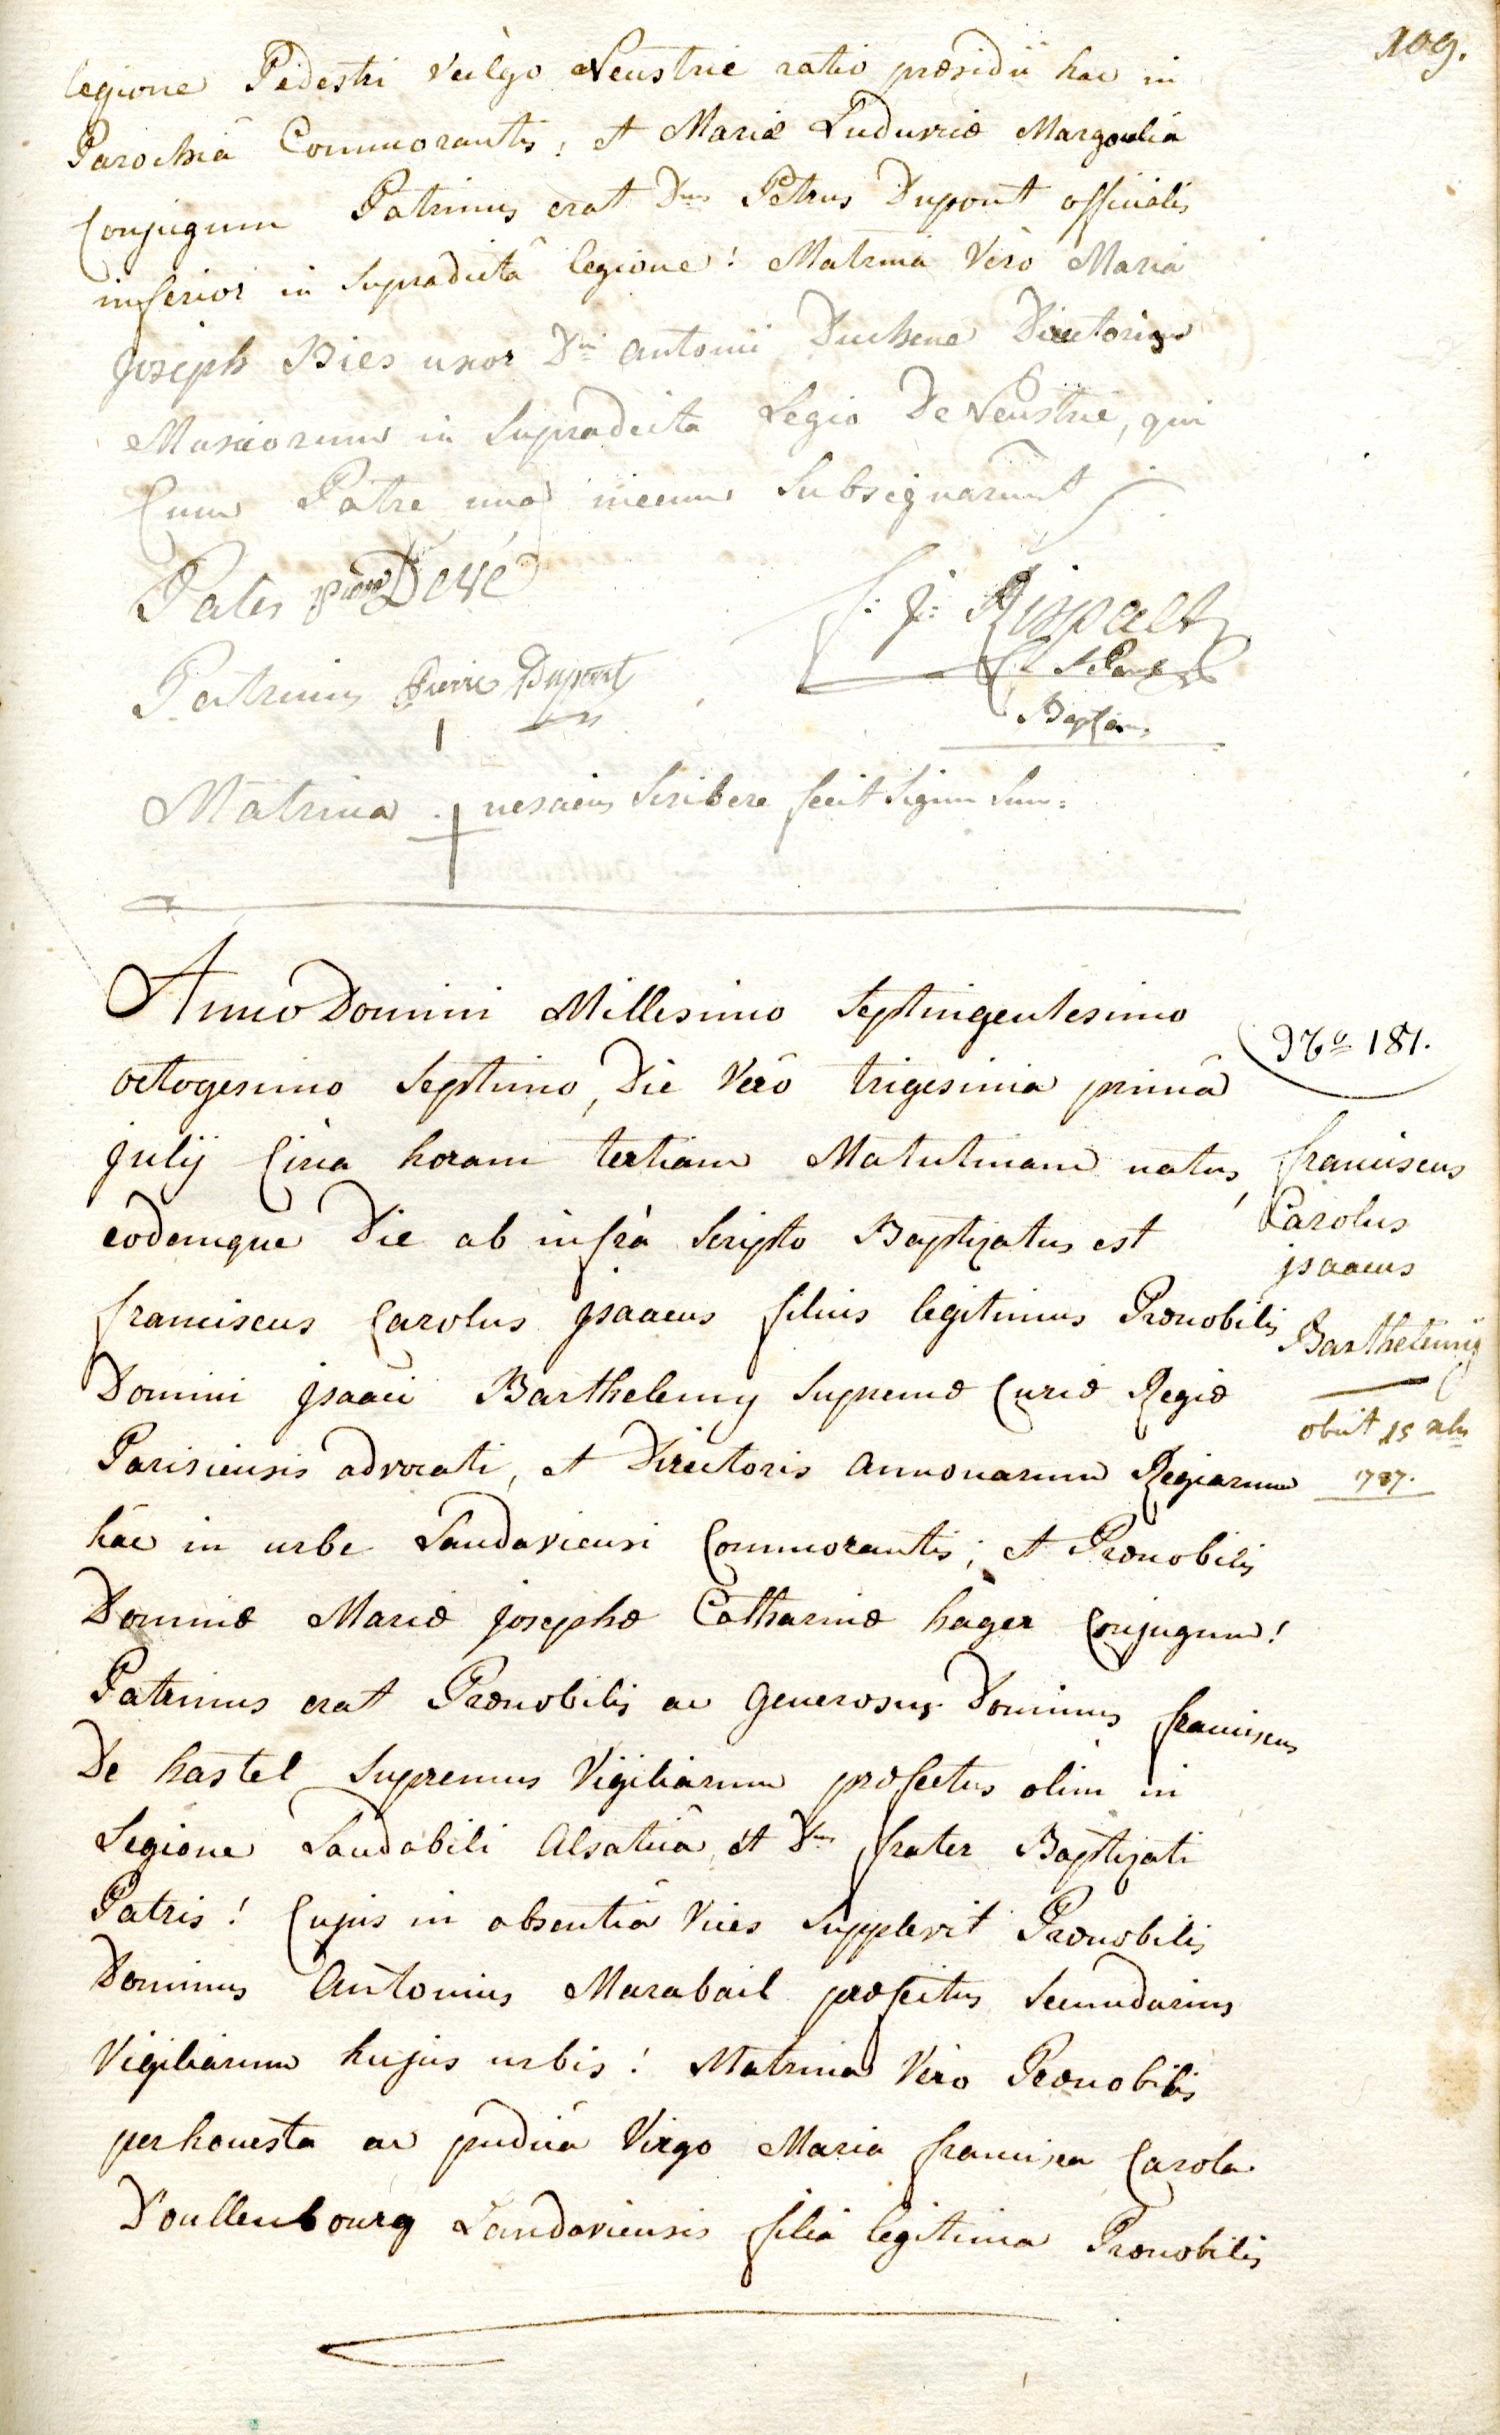 109.
legione Pedestri vulgo Neustrie ratio præsidii hac in
Parochiâ Commorantis, et Mariæ Ludovicæ Margoulia
Conjugum Patrinus erat Dnus Petrus Dupont officialis
inferior in supradictâ legione! Matrina Verò Maria
Joseph Bies uxor Dni antonii Duchene Directoris
Musicorum in Supradicta Legio De Neustrie, qui
Cum Patre una mecum Subsignarunt
Pater pierre Devé
f: j: Rispalt
Patrinus Pierre Dupont
Matrina + nesciens Scribere fecit Signum Suum:
Anno Domini Millesimo Septingentesimo
octogesimo Septimo, Die Verò trigesima primâ
julij Circa horam tertiam Matutinam natus,
eodemque Die ab infrà Scripto Baptizatus est
franciscus Carolus jsaacus filius legitimus Prænobilis
Domini jsaaci Barthelemy Supremæ Curiæ Regiæ
Parisiensis advocati, et Directoris annonarum Regiarum
hâc in urbe Landaviensi Commorantis; et Prænobilis
Dominæ Mariæ josephæ Catharinæ hâger Conjugum!
Patrinus erat Prænobilis ac Generosus Dominus franciscus
De hastel Supremus Vigiliarum præfectus olim in
Legione Laudabili Alsaticâ et Dni frater Baptizati
Patris! Cujus in absentiâ Vices Supplevit Prænobilis
Dominus Antonius Marabail præfectus Secundarius
Vigiliarum hujus urbis! Matrina Vero Prænobilis
perhonesta ac pudica Virgo Maria francisca Carola
Doullenbourg Landaviensis filia legitima Prænobilis
No 181.
franciscus
Carolus
jsaacus
Barthelemij
obiit 15 xbris
1787.